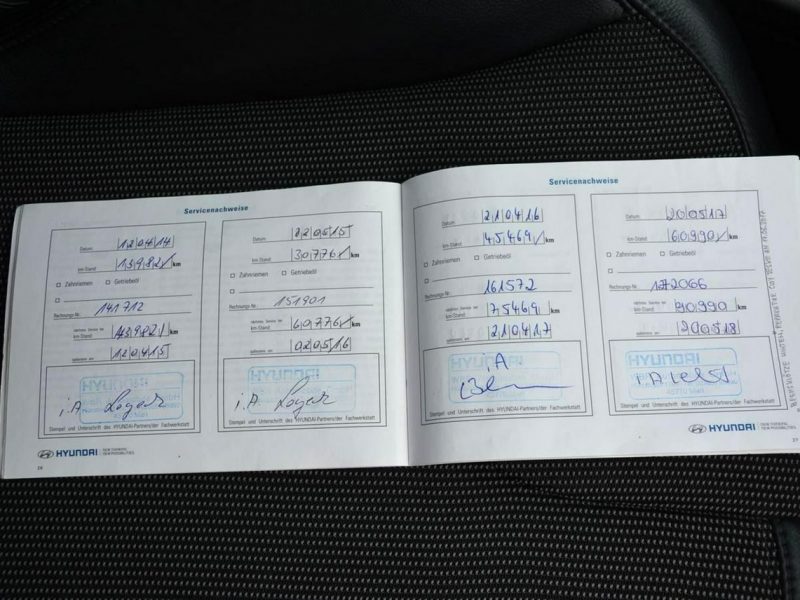 Servicenachweise
Datum 12 04 14
km-Stand 13982 km
Zahnriemen Getriebeöl
Rechnungs-Nr. 141712
nächstes Service bei
km-Stand 43982 km
spätestens am 120415
HYUNDAI
i.A.
Stempel und Unterschrift des HYUNDAI-Partners/der Fachwerkstatt
Datum 020515
km-Stand 30776 km
Zahnriemen Getriebeöl
Rechnungs-Nr. 151901
nächstes Service bei
km-Stand 60776 km
spätestens am 020516
HYUNDAI
i.A.
Stempel und Unterschrift des HYUNDAI-Partners/der Fachwerkstatt
HYUNDAI NEW THINKING. NEW POSSIBILITIES.
26
Servicenachweise
Datum 210416
km-Stand 45469 km
Zahnriemen Getriebeöl
Rechnungs-Nr. 161572
nächstes Service bei
km-Stand 75469 km
spätestens am 210417
HYUNDAI
i.A
Stempel und Unterschrift des HYUNDAI-Partners/der Fachwerkstatt
Datum 200517
km-Stand 60990 km
Zahnriemen Getriebeöl
Rechnungs-Nr. 172066
nächstes Service bei
km-Stand 90990 km
spätestens am 200518
HYUNDAI
i.A
Stempel und Unterschrift des HYUNDAI-Partners/der Fachwerkstatt
HYUNDAI NEW THINKING. NEW POSSIBILITIES.
27